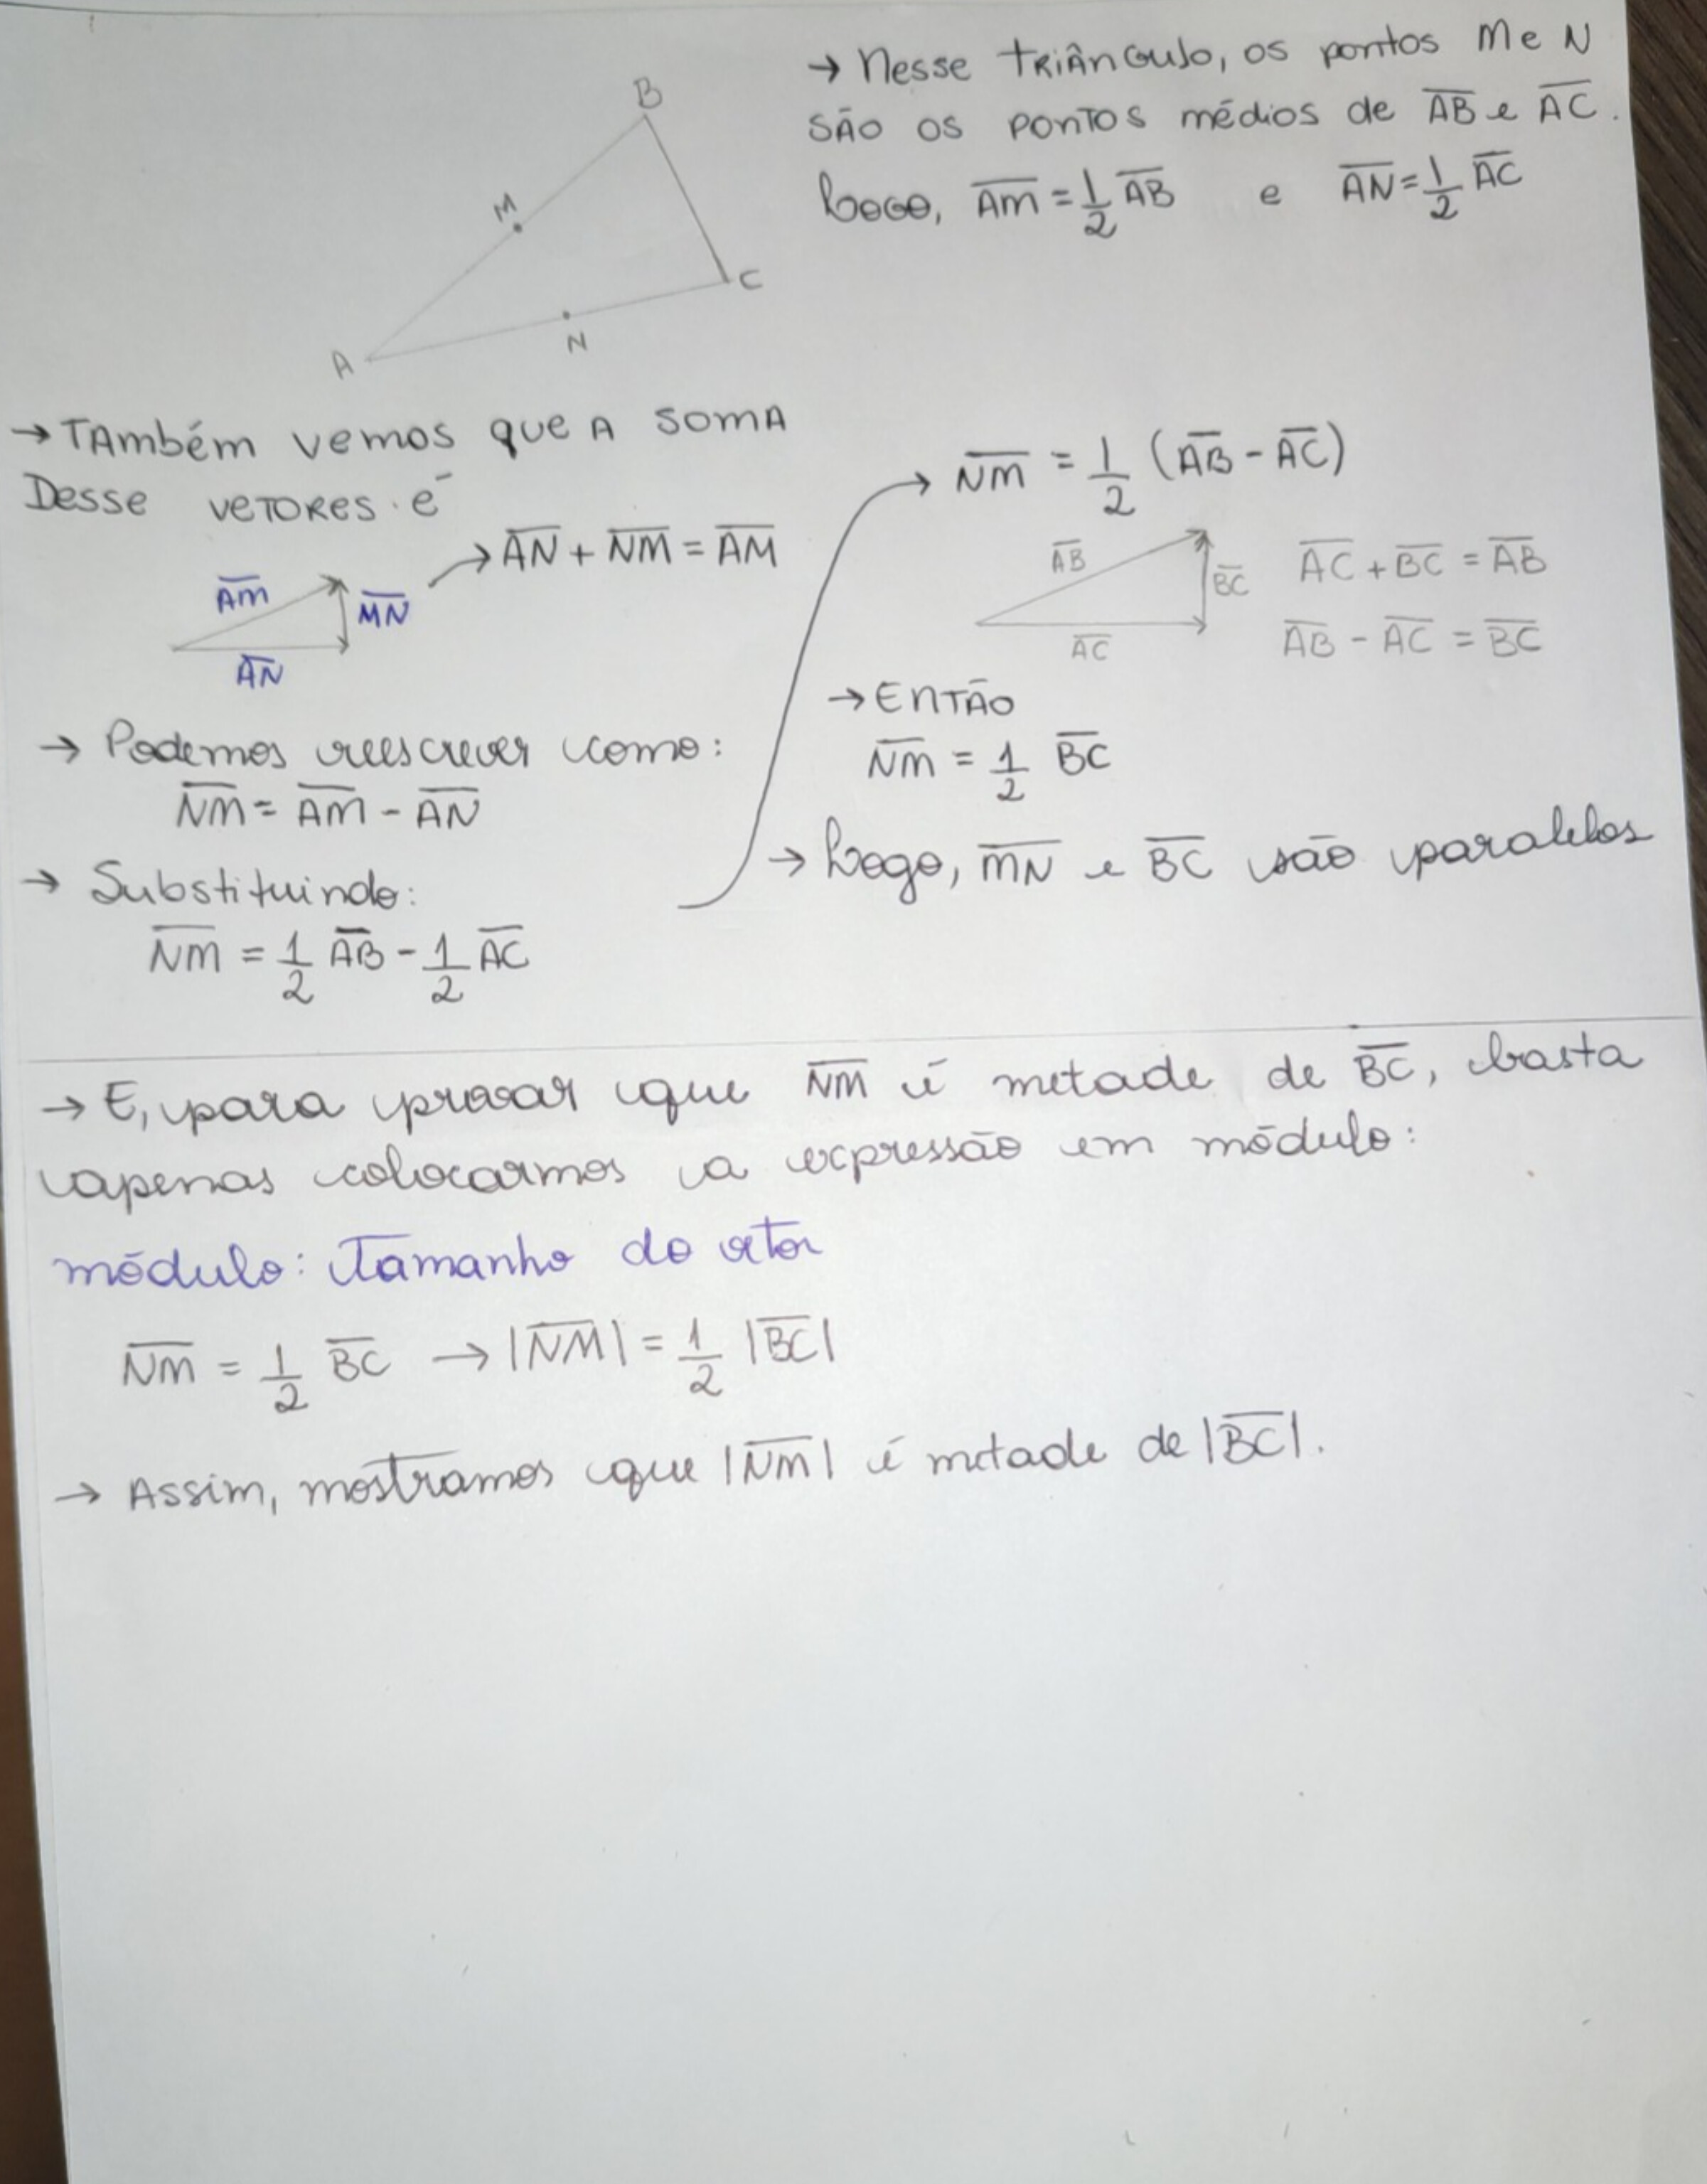 B
M
C
N
A
→ Nesse TRIÂNGULO, os pontos M e N
SÃO OS PONTOS médios de A̅B̅ e A̅C̅.
Logo, A̅M̅ = 1/2 A̅B̅ e A̅N̅ = 1/2 A̅C̅
→ TAmbém vemos que A SOMA
Desse VETORES é
→ A̅N̅ + N̅M̅ = A̅M̅
A̅M̅
M̅N̅
A̅N̅
→ Podemos reescrever como:
N̅M̅ = A̅M̅ - A̅N̅
→ Substituindo:
N̅M̅ = 1/2 A̅B̅ - 1/2 A̅C̅
→ N̅M̅ = 1/2 (A̅B̅ - A̅C̅)
A̅B̅
B̅C̅
A̅C̅
A̅C̅ + B̅C̅ = A̅B̅
A̅B̅ - A̅C̅ = B̅C̅
→ ENTÃO
N̅M̅ = 1/2 B̅C̅
→ Logo, M̅N̅ e B̅C̅ são paralelos
→ E, para provar que N̅M̅ é metade de B̅C̅, basta
apenas colocarmos a expressão em módulo:
módulo: Tamanho do vetor
N̅M̅ = 1/2 B̅C̅ → |N̅M̅| = 1/2 |B̅C̅|
→ Assim, mostramos que |N̅M̅| é metade de |B̅C̅|.